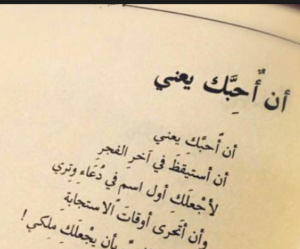 أن أُحِبَّك يعني
أن أُحبَّك يعني
أن أستيقظَ في آخرِ الفجرِ
لأجْعلَكِ أول اسم في دُعَاءِ وِتري
وأن أتحرى أوقاتَ الاستجابةِ
بأن يجْعلَكِ ملِكي !